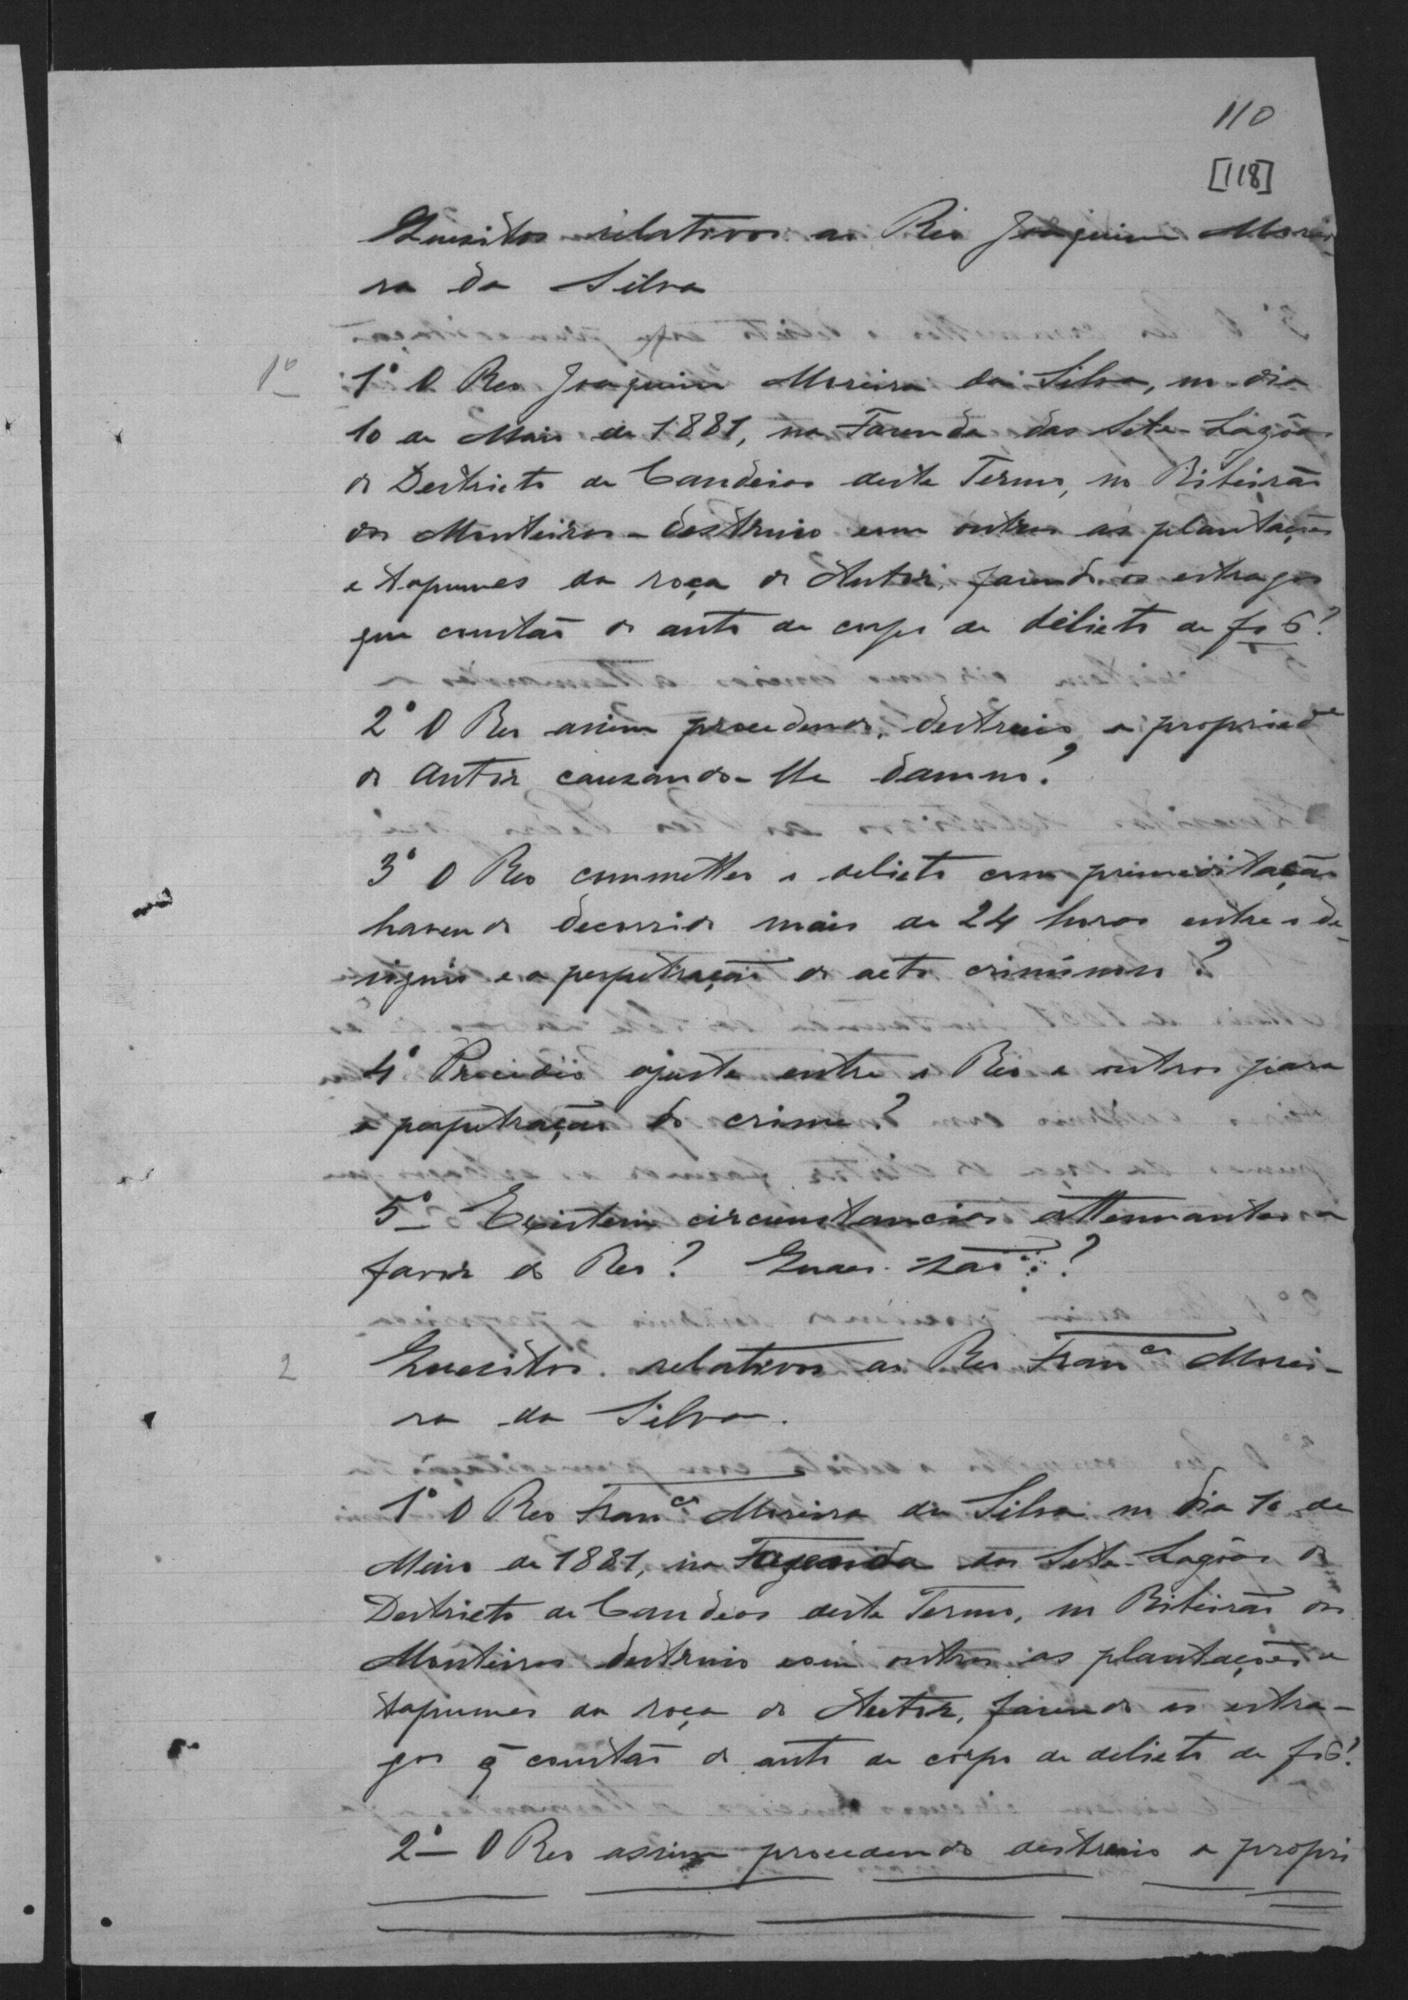 110
[118]
Quesitos relativos ao Reo Joaquim Morei
ra da Silva
1º
1º O Reo Joaquim Moreira da Silva, no dia
10 de Maio de 1881, na Fazenda das Sete Lagôas
do Destricto de Candeias deste Termo, no Ribeirão
dos Monteiros - destruio com outros as plantações
e tapumes da roça do Autor, fazendo os estragos
que constão do auto de corpo de delicto de fs 6?
2º O Reo assim procedendo, destruio a propriede
do Autor causando-lhe damno?
3º O Reo commetteo o delicto com premeditação
havendo decorrido mais de 24 horas entre o de-
signio e a perpetração do acto criminoso?
4º Precedeo ajuste entre o Reo e outros para
a perpetração do crime?
5º Existem circumstancias attenuantes a
favor do Reo? Quaes são?
2
Quesitos relativos ao Reo Franco Morei-
ra da Silva.
1º O Reo Franco Moreira da Silva no dia 10 de
Maio de 1881, na Fazenda das Sete Lagôas do
Destricto de Candeas deste Termo, no Ribeirão dos
Monteiros destruio com outros as plantações e
tapumes da roça do Autor, fazendo os estra-
gos q̃ constão do auto de corpo de delicto de fs 6?
2º - O Reo assim procedendo destruio a propri